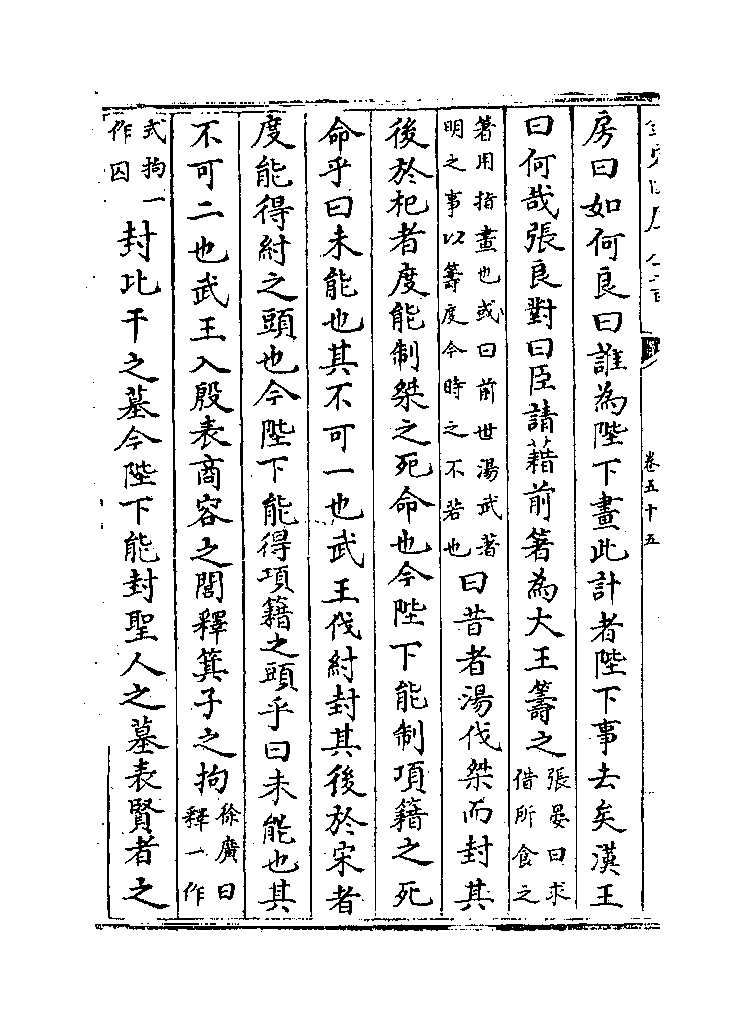 卷五十五
房曰如何良曰誰為陛下畫此計者陛下事去矣漢王
曰何哉張良對曰臣請藉前箸為大王籌之張晏曰求借所食之
箸用指畫也或曰前世湯武著明之事以籌度今時之不若也曰昔者湯伐桀而封其
後於杞者度能制桀之死命也今陛下能制項籍之死
命乎曰未能也其不可一也武王伐紂封其後於宋者
度能得紂之頭也今陛下能得項籍之頭乎曰未能也其
不可二也武王入殷表商容之閭釋箕子之拘徐廣曰釋一作
式拘一作囚封比干之墓今陛下能封聖人之墓表賢者之